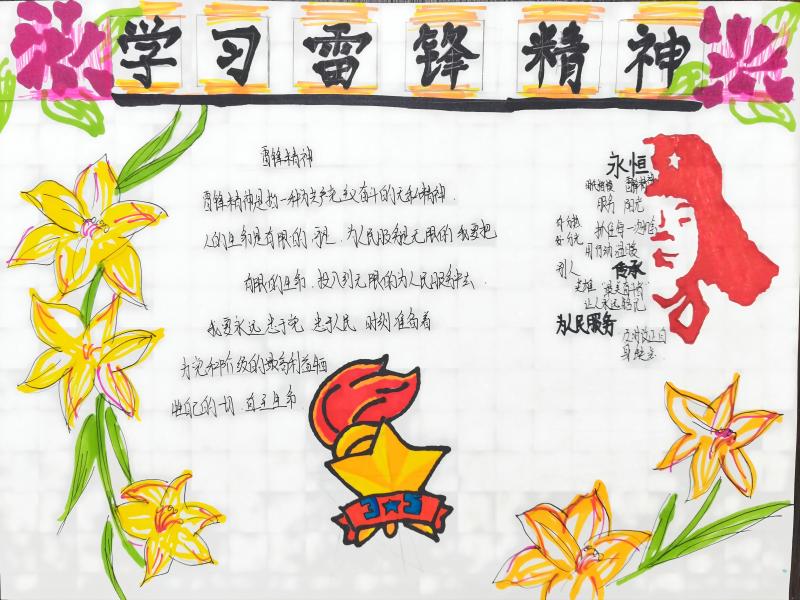 学习雷锋精神
雷锋精神
雷锋精神是指一种为共产主义奋斗的无私精神
人的生命是有限的 可是 为人民服务是无限的 我要把
有限的生命 投入到无限的为人民服务中去
我要永远忠于党 忠于人民 时刻准备着
为党和阶级的最高利益牺
牲自己的一切 直至生命
3★5
永恒
雷锋精神
服务 阳光
抓住每一次
用行动温暖
别人 传承
让人永远铭记
为人民服务